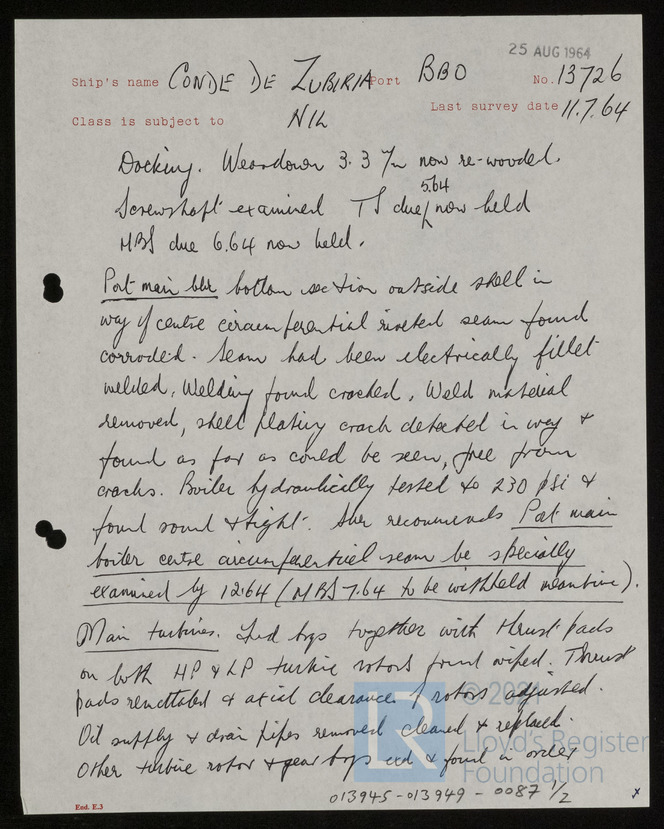 25 AUG 1964
Ship's name CONDE DE ZUBIRIA Port BBO No. 13726
Last survey date 11.7.64
Class is subject to NIL
Docking. Weardown 3.3 m/m now re-wooded.
5.64
Screwshaft examined TS due now held
MBS due 6.64 now held.
Port main blr bottom section outside shell in
way of centre circumferential riveted seam found
corroded. Seam had been electrically fillet
welded, Welding found cracked, Weld material
removed, shell plating crack detected in way &
found as far as could be seen, free from
cracks. Boiler hydraulically tested to 230 psi &
found sound & tight. Svr recommends Port main
boiler centre circumferential seam be specially
examined by 12.64 (MBS 7.64 to be withheld meantime).
Main turbines. Fwd brgs together with thrust pads
on both HP & LP turbine rotors found wiped. Thrust
pads remetalled & axial clearances of rotors adjusted.
Oil supply & drain pipes removed cleaned & replaced.
Other turbine rotor & gear brgs exd & found in order
© 2021
LR
Lloyd's Register
Foundation
013945-013949-0087 1/2
End. E.3
x